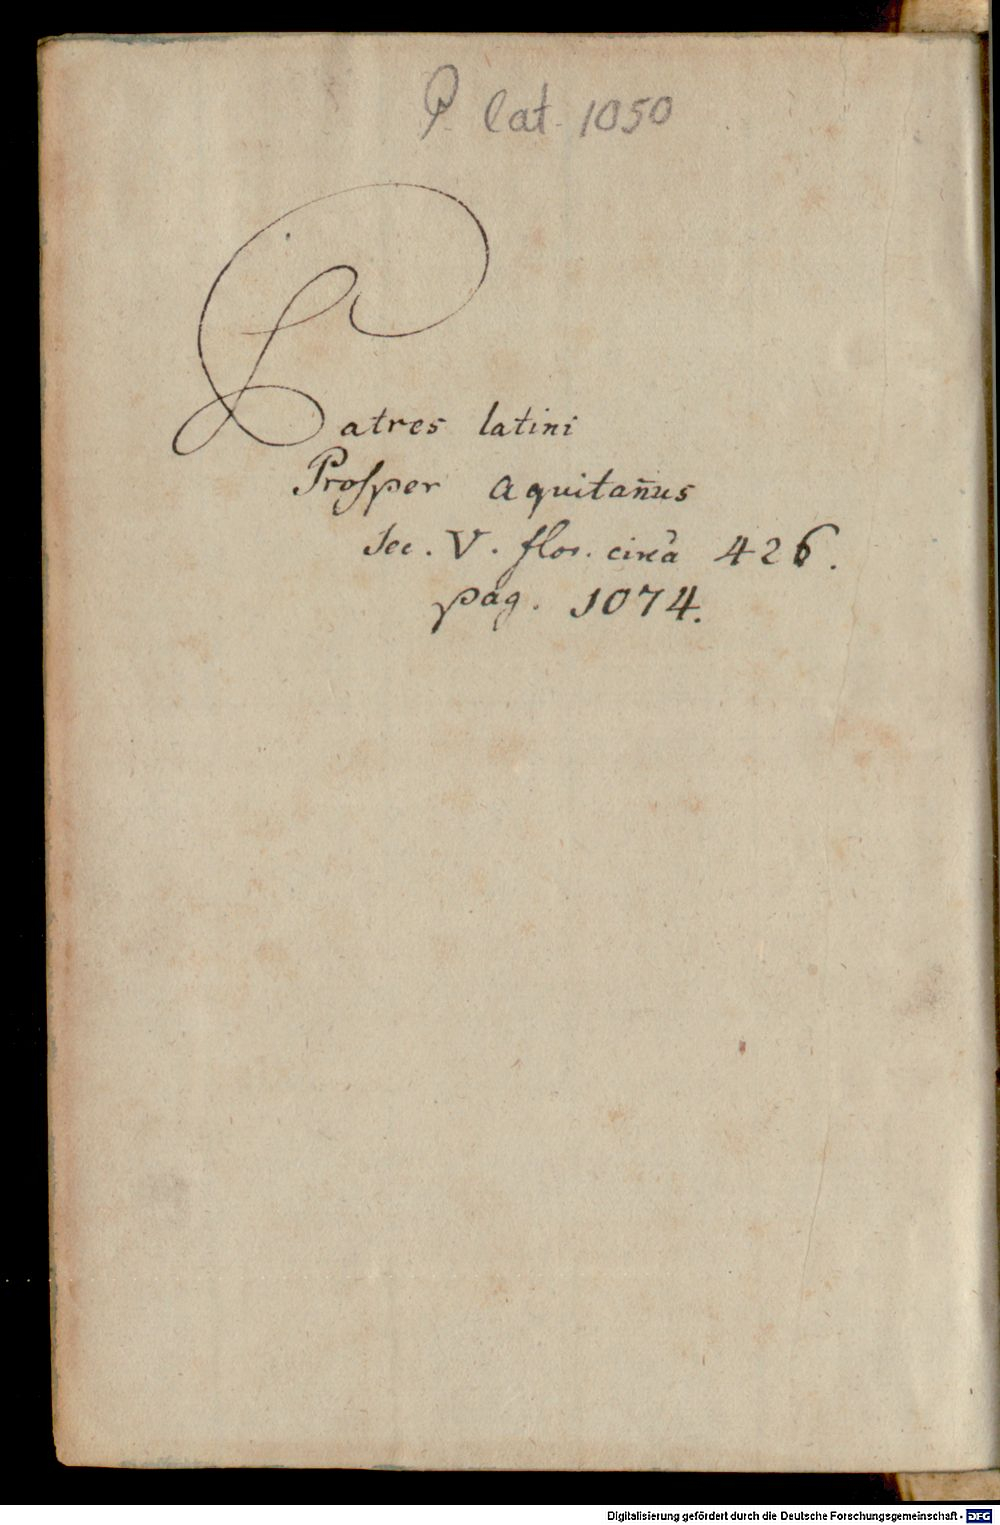 P. lat. 1050
Patres latini
Proſper Aquitan̄us
Sec. V. flor. circa 426.
pag. 1074.
Digitalisierung gefördert durch die Deutsche Forschungsgemeinschaft - DFG